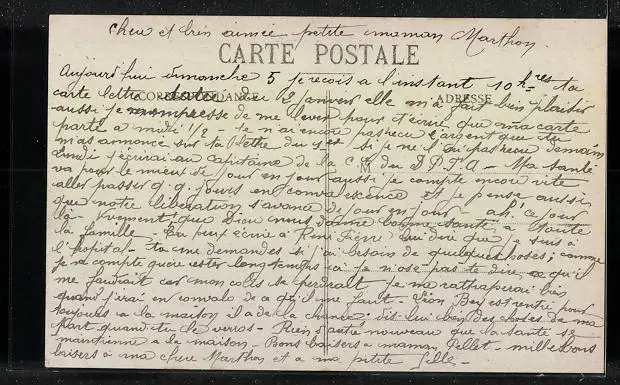 Chere et bien aimée petite maman Marthon.
CARTE POSTALE
Aujourd'hui dimanche 5 je recois a l'instant 10 h ta
CORRESPONDANCE
ADRESSE
carte lettre datée du 2 janvier elle m'a fait bien plaisir
aussi je m'empresse de me lever pour t'écrire que ma carte
parte a midi 1/2 - Je n'ai encore pas recu l'argent que tu
m'as annoncé sur ta lettre du 1er si je ne l'ai pas recu demain
Lundi j'écrirai au Capitaine de la du D.P.T.A - Ma santé
va pour le mieux de jour en jour aussi je compte encore vite
aller passer q.q. jours en convalescence et je pense aussi
que notre libération s'avance de jour en jour - ah! ce jour
là - vivement que Dieu nous donne bonne santé a toute
la famille - Tu peux écrire a René lui dire que je suis à
l'hopital - tu me demandes si j'ai besoin de quelques choses; comme
je compte rester longtemps ici je n'ose pas te dire ce qu'il
me faudrait car mon colis se perdrait je me rattraperai bien
quand j'irai en convalo de a qu'il me faut - Léon Bey est rentré pour
toujours a la maison il a de la chance; dis lui bien des choses de ma
part quand tu le verras - Rien d'autre nouveau que la santé se
maintienne a la maison - Bons baisers a maman Pellet - mille bons
baisers à ma chere Marthon et a ma petite fille -